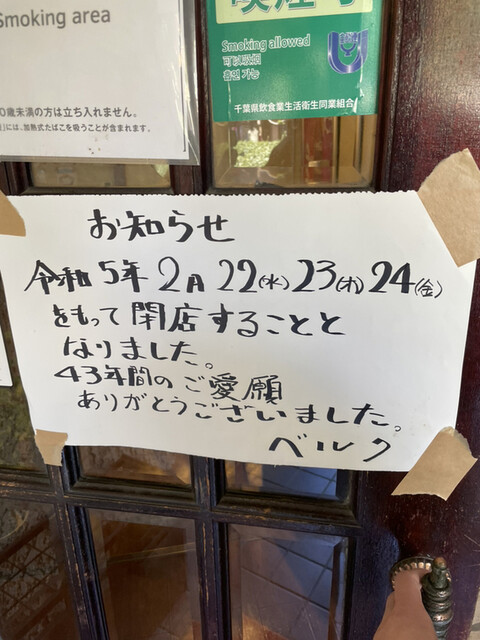 Smoking area
0歳未満の方は立ち入れません。
には、加熱式たばこを吸うことが含まれます。
Smoking allowed
可以吸烟
흡연 가능
千葉県飲食業生活衛生同業組合
お知らせ
令和5年2月22(水)23(木)24(金)
をもって閉店することと
なりました。
43年間のご愛願
ありがとうございました。
ベルク